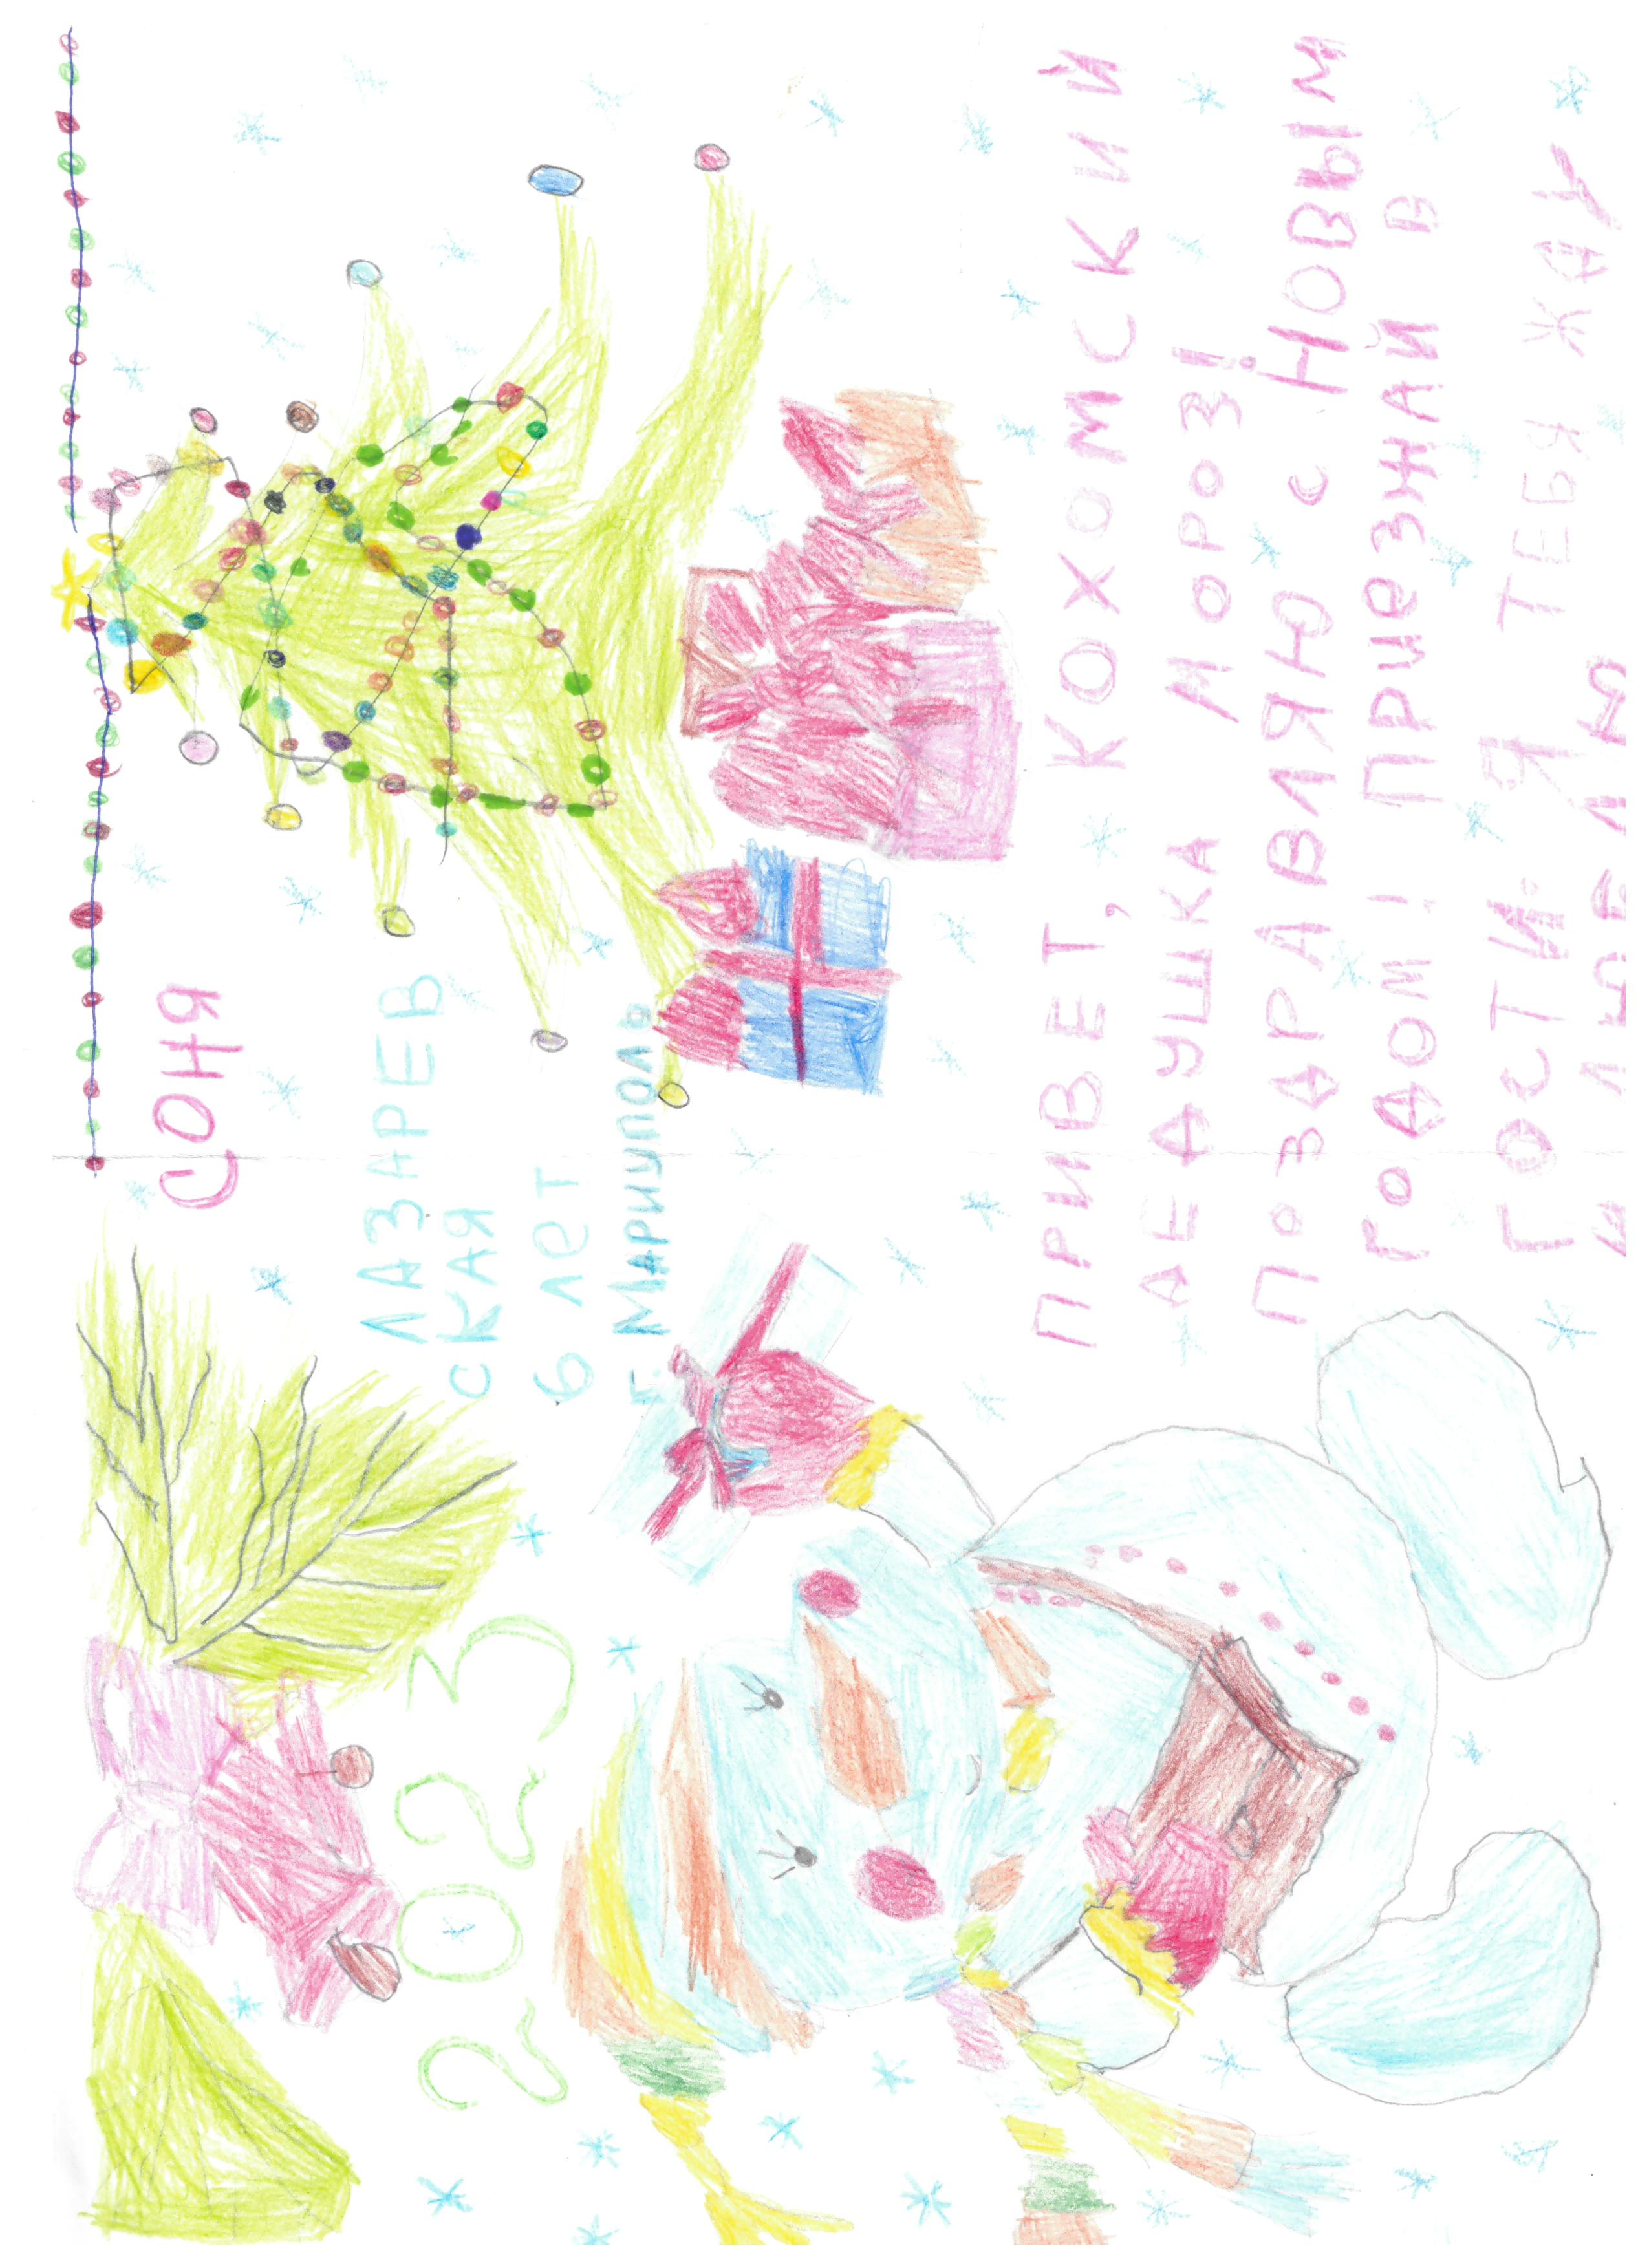 СОНЯ
ЛАЗАРЕВ
СКАЯ
6 лет
г. Мариуполь
2023
ПРИВЕТ, КОХОМСКИЙ
ДЕДУШКА МОРОЗ!
ПОЗДРАВЛЯЮ С НОВЫМ
ГОДОМ! ПРИеЗЖАЙ В
ГОСТИ. Я ТЕБЯ ЖДУ
И ЛЮБЛЮ